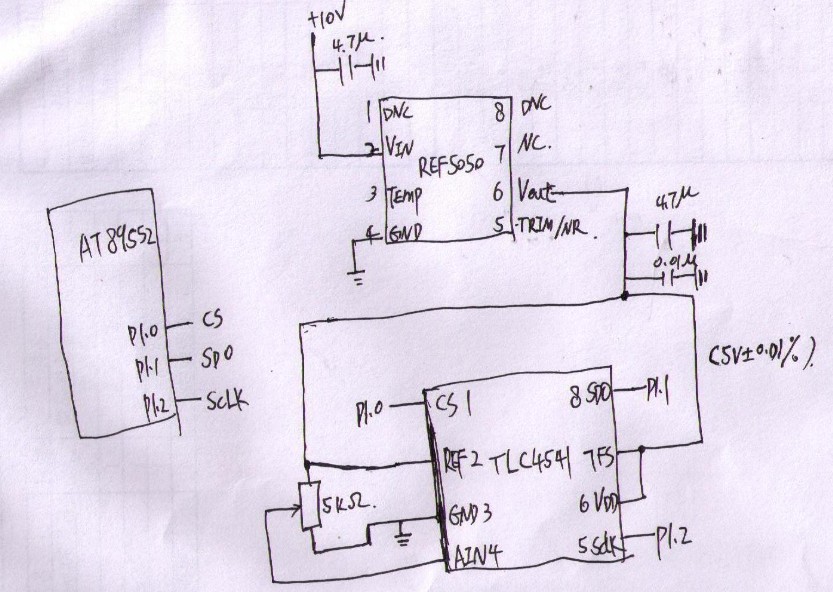 +10V
4.7μ.
1 DNC 8 DNC
2 VIN 7 NC.
REF5050
3 Temp 6 Vout
4 GND 5 TRIM/NR.
4.7μ
0.01μ
AT89S52
P1.0 CS
P1.1 SDO
P1.2 SCLK
(5V±0.01%).
P1.0 CS 1 8 SDO P1.1
REF 2 TLC4541 7 FS
5KΩ.
GND 3 6 VDD
AIN 4 5 Sclk P1.2